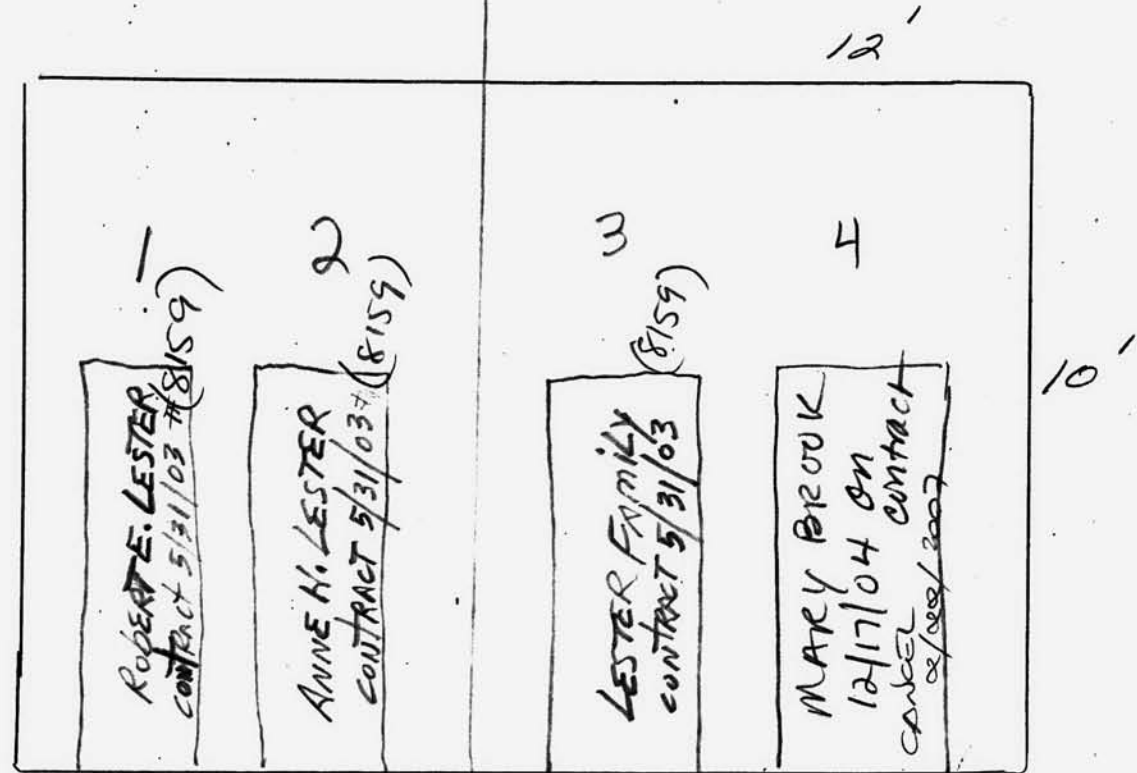 12'
10'
1
ROBERT E. LESTER
CONTRACT 5/31/03 #(8159)
2
ANNE H. LESTER
CONTRACT 5/31/03 (8159)
3
LESTER FAMILY
CONTRACT 5/31/03
(8159)
4
MARY BROOK
12/17/04 on
contract
CANCEL